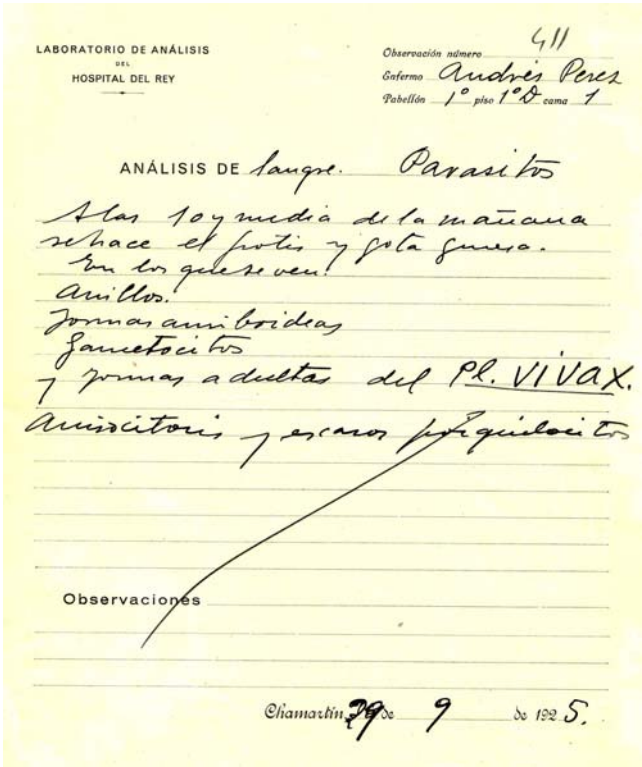 LABORATORIO DE ANÁLISIS
DEL
HOSPITAL DEL REY
Observación número 411
Enfermo Andrés Perez
Pabellón 1º piso 1º D cama 1
ANÁLISIS DE Sangre. Parasitos
A las 10 y media de la mañana
se hace el frotis y gota gruesa.
En los que se ven:
Anillos.
formas amiboideas
Gametocitos
y formas adultas del Pl. VIVAX.
Anisocitosis y escasos poiquilocitos
Observaciones
Chamartín, 29 de 9 de 1925.